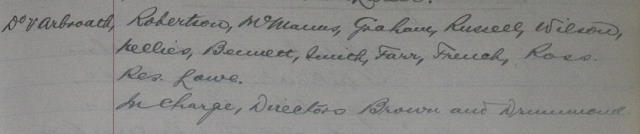 Do v Arbroath, Robertson, McManus, Graham, Russell, Wilson,
Kellies, Bennett, Smith, Farr, French, Ross.
Res. Lowe.
In Charge, Directors Brown and Drummond